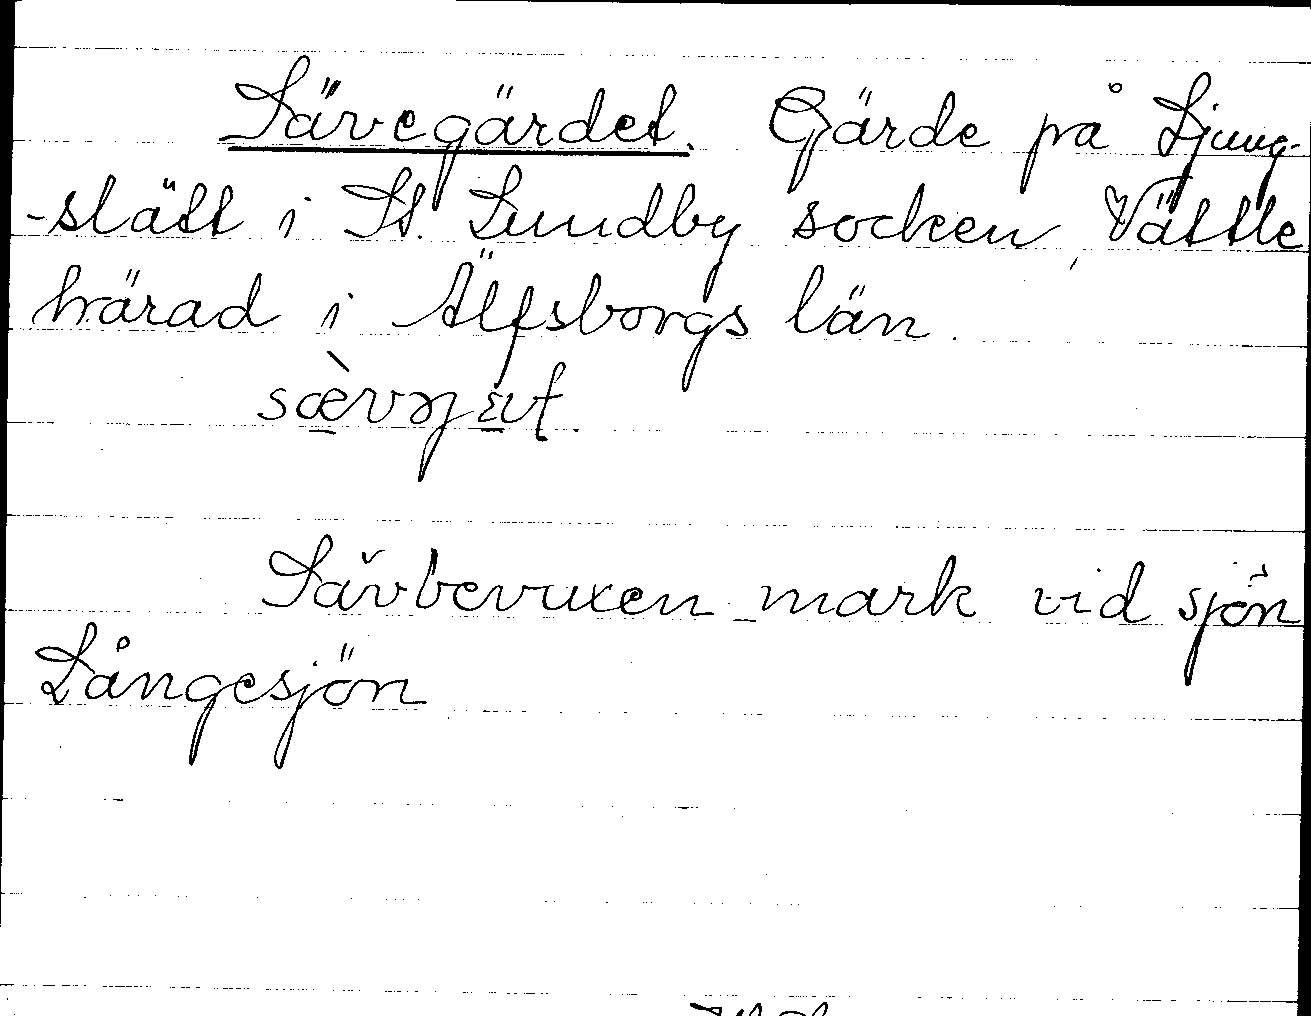 Sävegärdet. Gärde på Ljung-
-slätt i St. Lundby socken, Vättle
härad i Älfsborgs län.
Sävbevuxen mark vid sjön
Långesjön